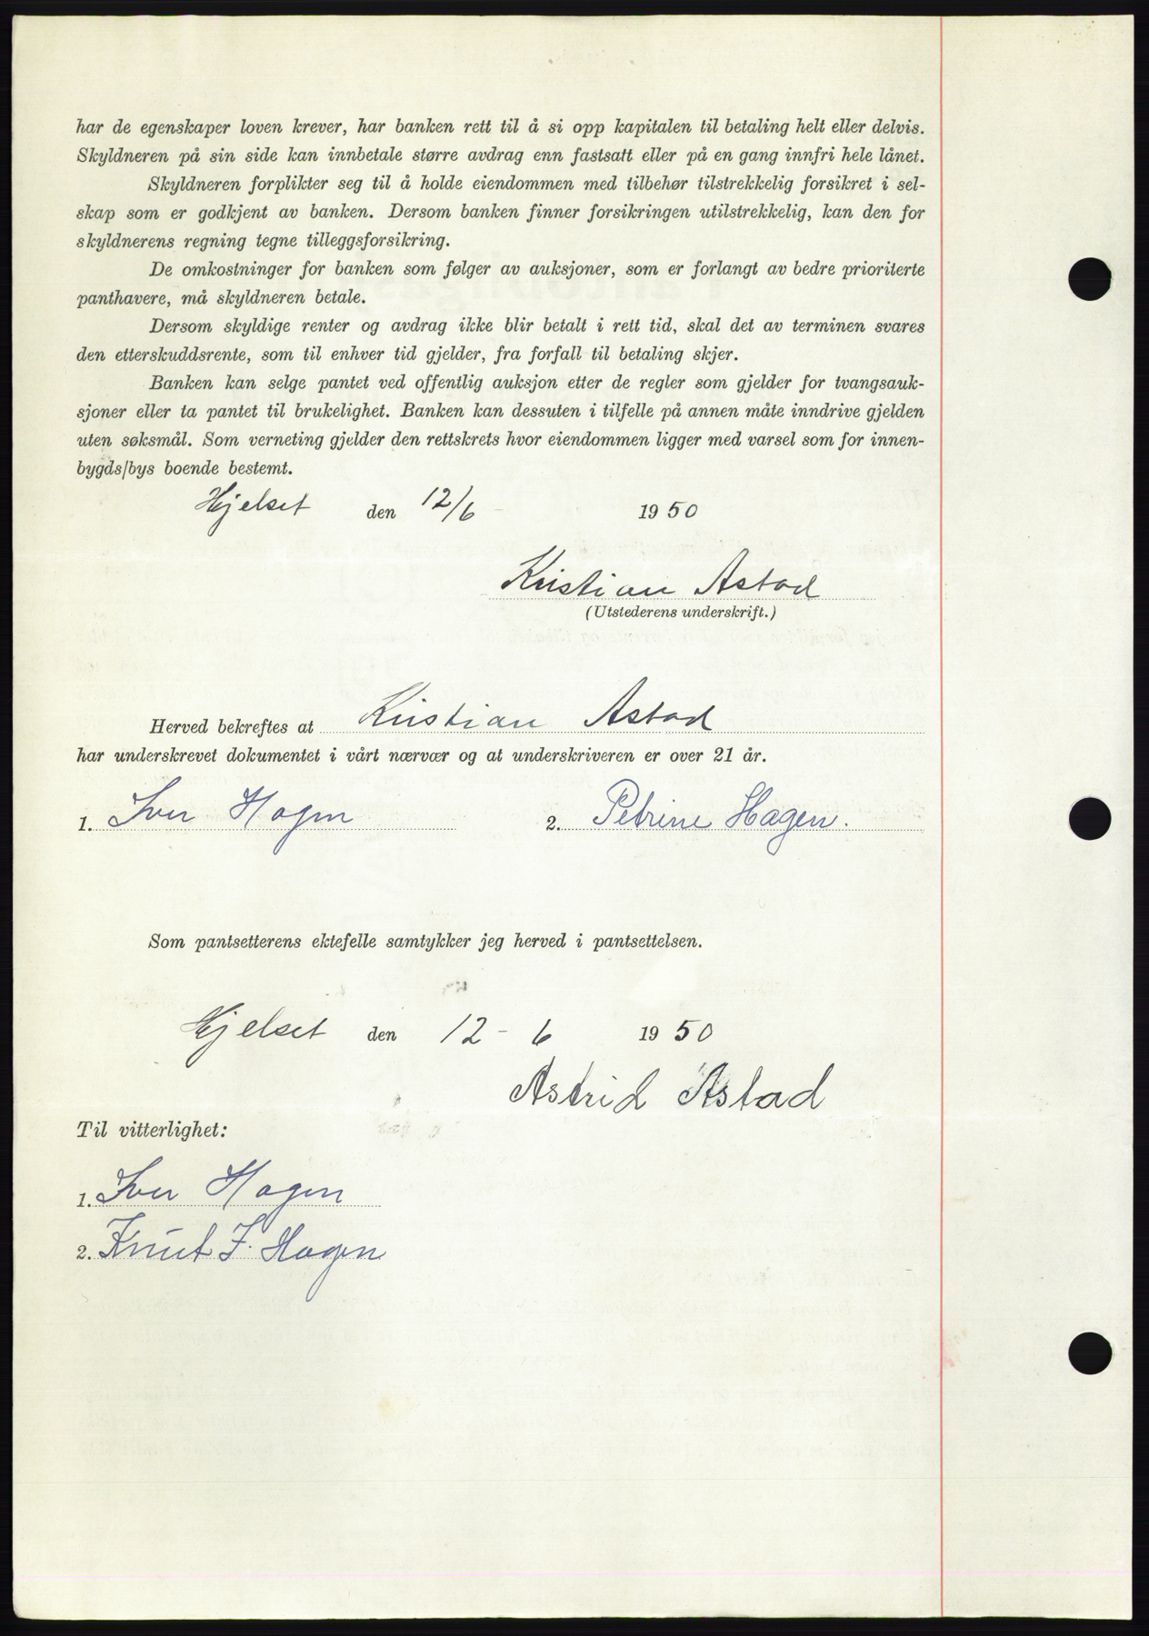 har de egenskaper loven krever, har banken rett til å si opp kapitalen til betaling helt eller delvis.
Skyldneren på sin side kan innbetale større avdrag enn fastsatt eller på en gang innfri hele lånet.
Skyldneren forplikter seg til å holde eiendommen med tilbehør tilstrekkelig forsikret i sel-
skap som er godkjent av banken. Dersom banken finner forsikringen utilstrekkelig, kan den for
skyldnerens regning tegne tilleggsforsikring.
De omkostninger for banken som følger av auksjoner, som er forlangt av bedre prioriterte
panthavere, må skyldneren betale.
Dersom skyldige renter og avdrag ikke blir betalt i rett tid, skal det av terminen svares
den etterskuddsrente, som til enhver tid gjelder, fra forfall til betaling skjer.
Banken kan selge pantet ved offentlig auksjon etter de regler som gjelder for tvangsauk-
sjoner eller ta pantet til brukelighet. Banken kan dessuten i tilfelle på annen måte inndrive gjelden
uten søksmål. Som verneting gjelder den rettskrets hvor eiendommen ligger med varsel som for innen-
bygds/bys boende bestemt.
Hjelset den 12/6 1950
Kristian Astad
(Utstederens underskrift.)
Herved bekreftes at Kristian Astad
har underskrevet dokumentet i vårt nærvær og at underskriveren er over 21 år.
1. Iver Hagen 2. Petrine Hagen.
Som pantsetterens ektefelle samtykker jeg herved i pantsettelsen.
Hjelset den 12-6 1950
Astrid Astad
Til vitterlighet:
1. Iver Hagen
2. Knut F. Hagen